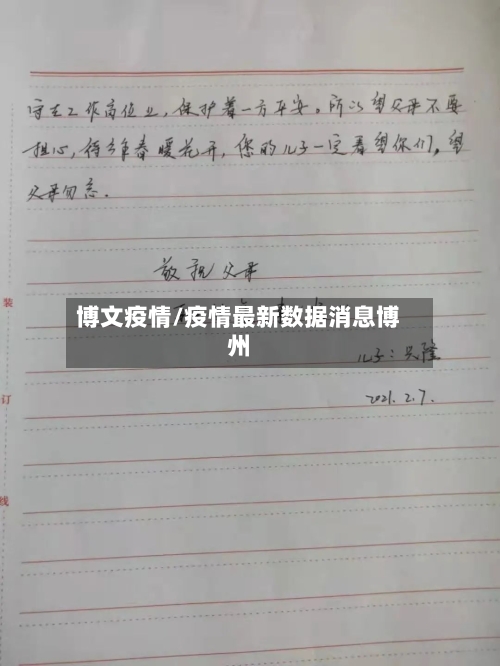 守在工作岗位上，保护着一方平安。所以望父母不要
担心，待到春暖花开，您的儿子一定看望你们。望
父母勿念。
敬祝父母
博文疫情/疫情最新数据消息博
州
儿子：兴隆
2021.2.7.
装
订
线